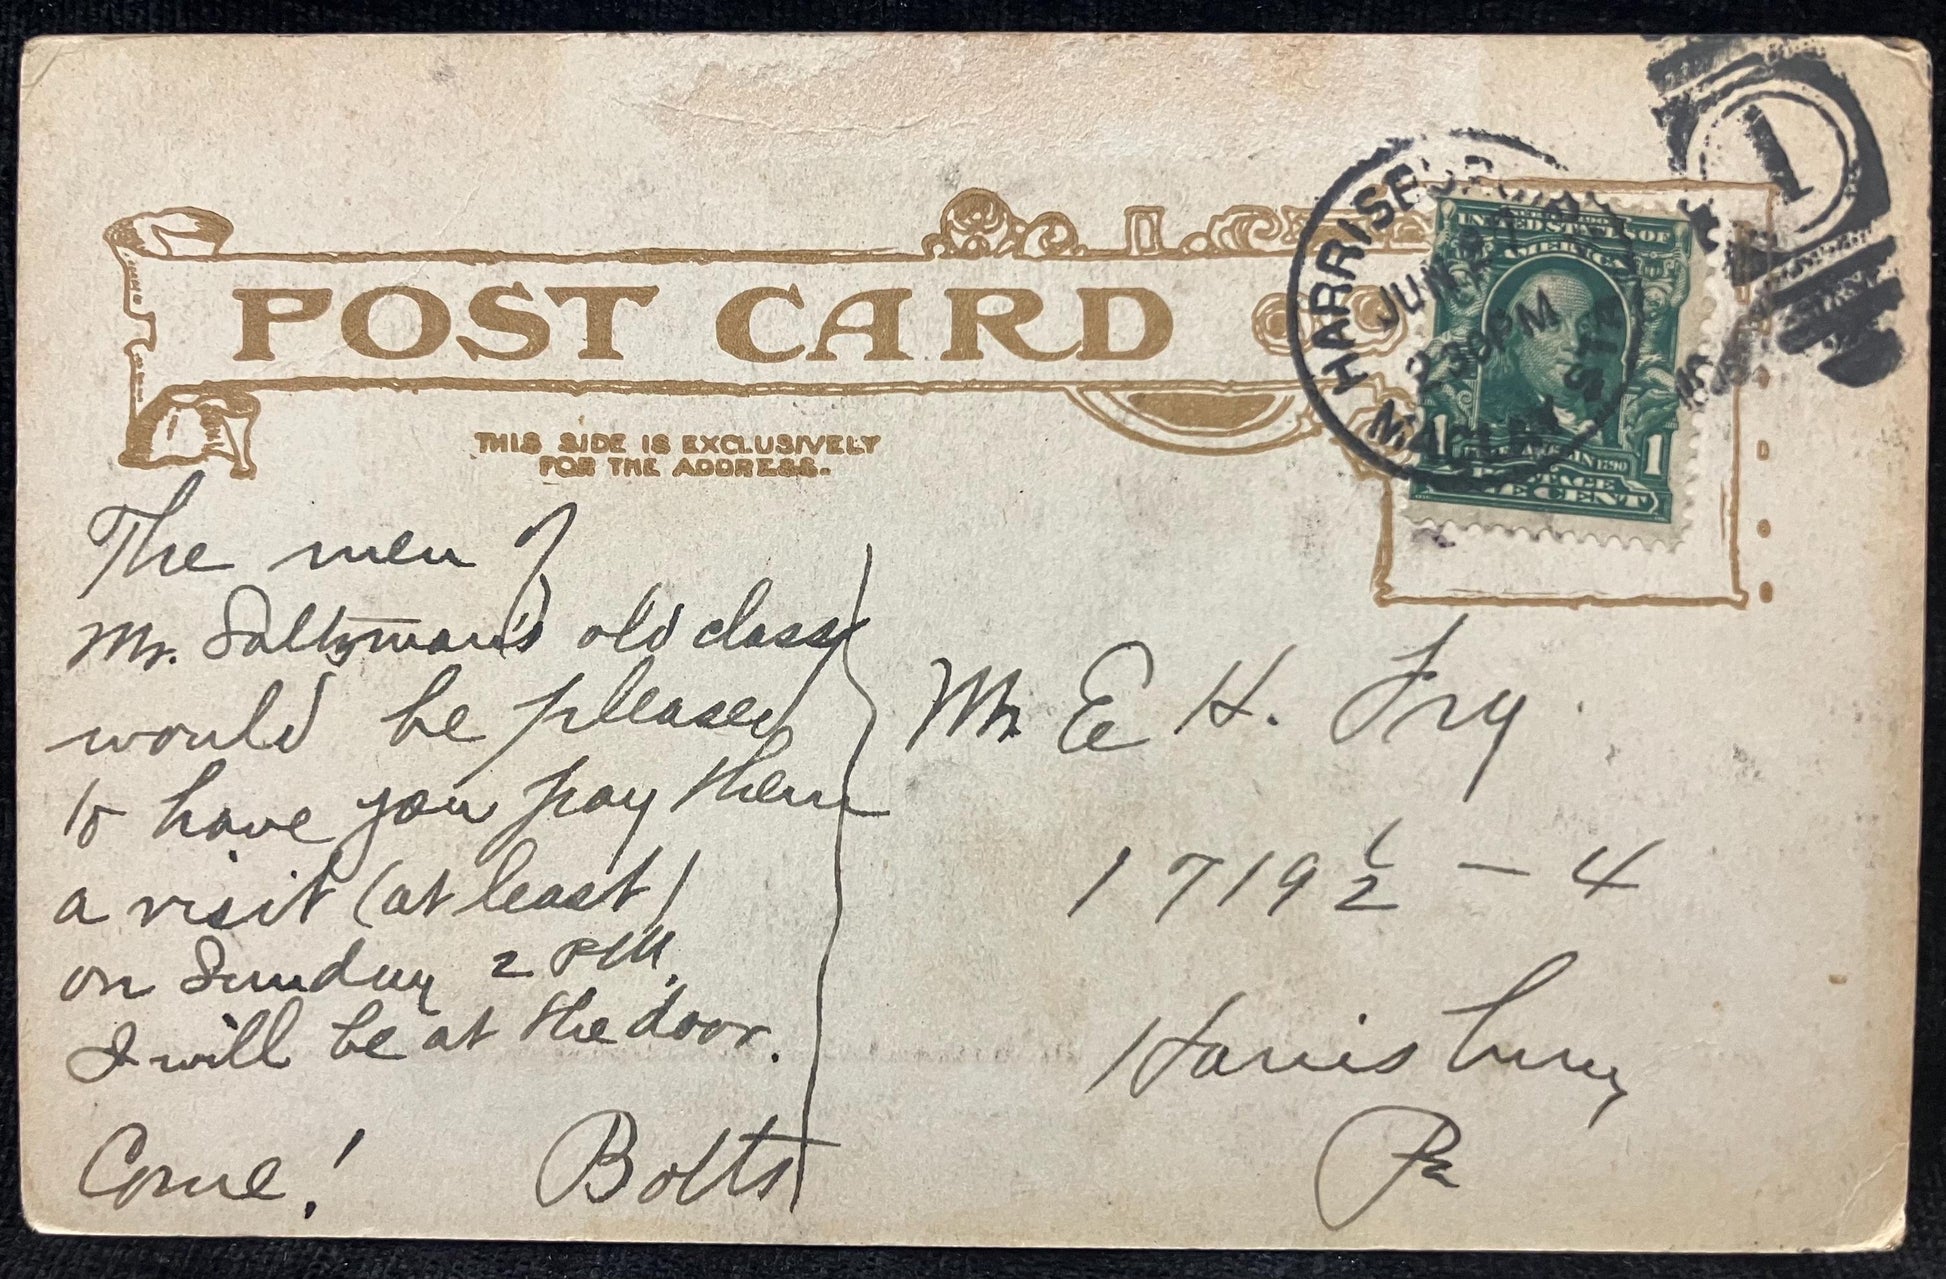 POST CARD
THIS SIDE IS EXCLUSIVELY
FOR THE ADDRESS.
HARRISBURG
JUN 27
2 30 PM
MACLAY STA
1
SERIES 1902
UNITED STATES OF
AMERICA
FRANKLIN 1790
1 1
POSTAGE
ONE CENT
The men of
Mr. Saltzman's old class
would be pleased
to have you pay them
a visit (at least)
on Sunday 2 PM.
I will be at the door.
Come! Bolts
Mr E H. Fry.
1719 1/2 — 4
Harrisburg
Pa